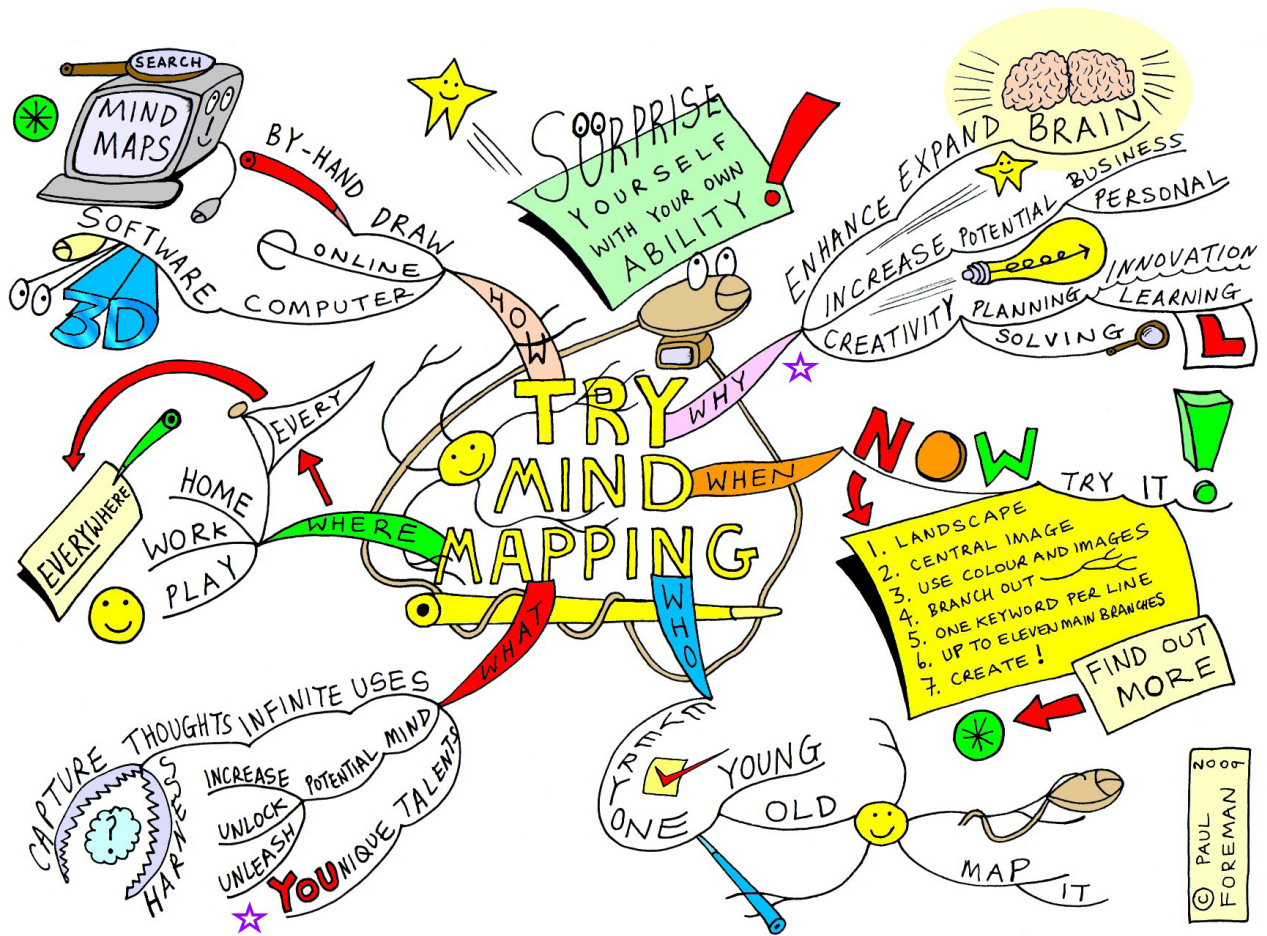 SEARCH
MIND
MAPS
BY-HAND
DRAW
ONLINE
COMPUTER
SOFTWARE
3D
HOW
SURPRISE
YOURSELF
WITH YOUR OWN
ABILITY
!
ENHANCE EXPAND BRAIN
INCREASE POTENTIAL BUSINESS
PERSONAL
CREATIVITY PLANNING INNOVATION
LEARNING
SOLVING
L
WHY
TRY
MIND
MAPPING
WHEN
NOW
TRY IT !
1. LANDSCAPE
2. CENTRAL IMAGE
3. USE COLOUR AND IMAGES
4. BRANCH OUT
5. ONE KEYWORD PER LINE
6. UP TO ELEVEN MAIN BRANCHES
7. CREATE !
FIND OUT
MORE
WHERE
EVERY
HOME
WORK
PLAY
EVERYWHERE
WHAT
INFINITE USES
THOUGHTS
CAPTURE
HARNESS
?
MIND
POTENTIAL
INCREASE
UNLOCK
UNLEASH
YOUNIQUE TALENTS
WHO
EVERYONE
YOUNG
OLD
MAP
IT
© PAUL
FOREMAN
2009